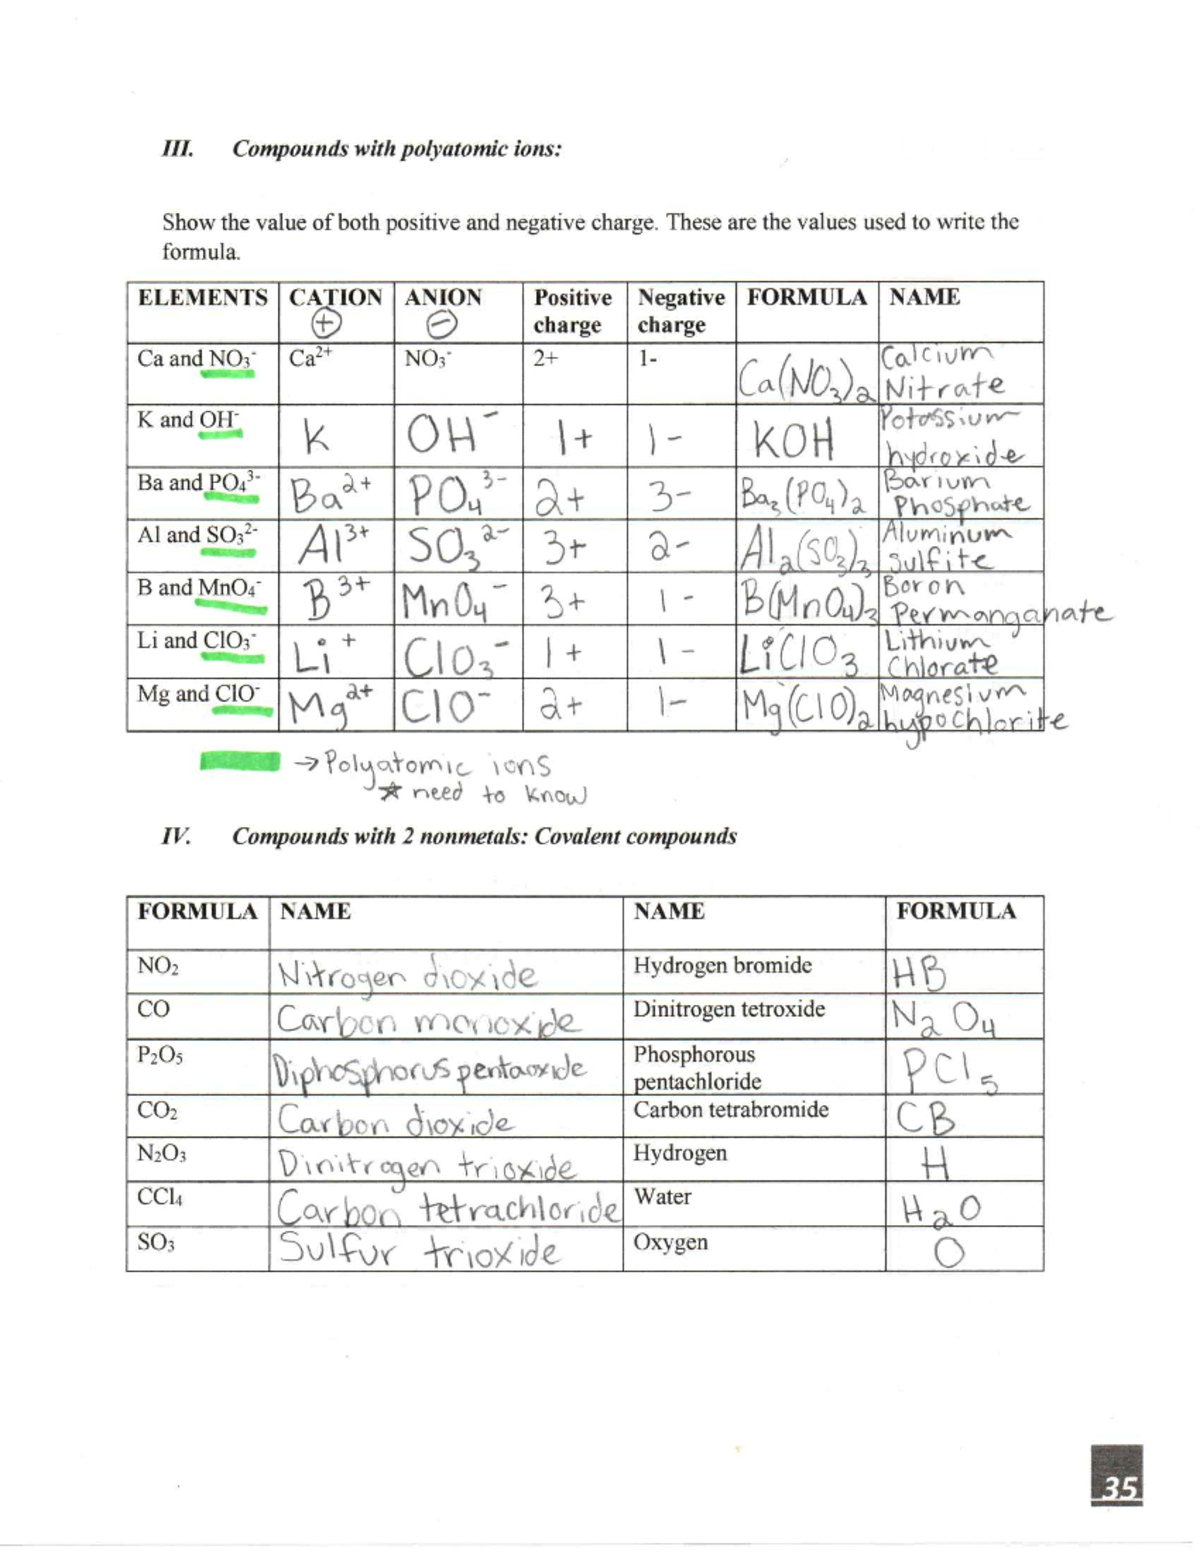 III. Compounds with polyatomic ions:
Show the value of both positive and negative charge. These are the values used to write the
formula.
ELEMENTS CATION ANION Positive charge Negative charge FORMULA NAME
⊕ ⊖
Ca and NO₃⁻ Ca²⁺ NO₃⁻ 2+ 1- Ca(NO₃)₂ Calcium Nitrate
K and OH⁻ K OH⁻ 1+ 1- KOH Potassium hydroxide
Ba and PO₄³⁻ Ba²⁺ PO₄³⁻ 2+ 3- Ba₃(PO₄)₂ Barium Phosphate
Al and SO₃²⁻ Al³⁺ SO₃²⁻ 3+ 2- Al₂(SO₃)₃ Aluminum Sulfite
B and MnO₄⁻ B³⁺ MnO₄⁻ 3+ 1- B(MnO₄)₃ Boron Permanganate
Li and ClO₃⁻ Li⁺ ClO₃⁻ 1+ 1- LiClO₃ Lithium Chlorate
Mg and ClO⁻ Mg²⁺ ClO⁻ 2+ 1- Mg(ClO)₂ Magnesium hypochlorite
→ Polyatomic ions
☆ need to know
IV. Compounds with 2 nonmetals: Covalent compounds
FORMULA NAME NAME FORMULA
NO₂ Nitrogen dioxide Hydrogen bromide HB
CO Carbon monoxide Dinitrogen tetroxide N₂O₄
P₂O₅ Diphosphorus pentaoxide Phosphorous pentachloride PCl₅
CO₂ Carbon dioxide Carbon tetrabromide CB
N₂O₃ Dinitrogen trioxide Hydrogen H
CCl₄ Carbon tetrachloride Water H₂O
SO₃ Sulfur trioxide Oxygen O
35